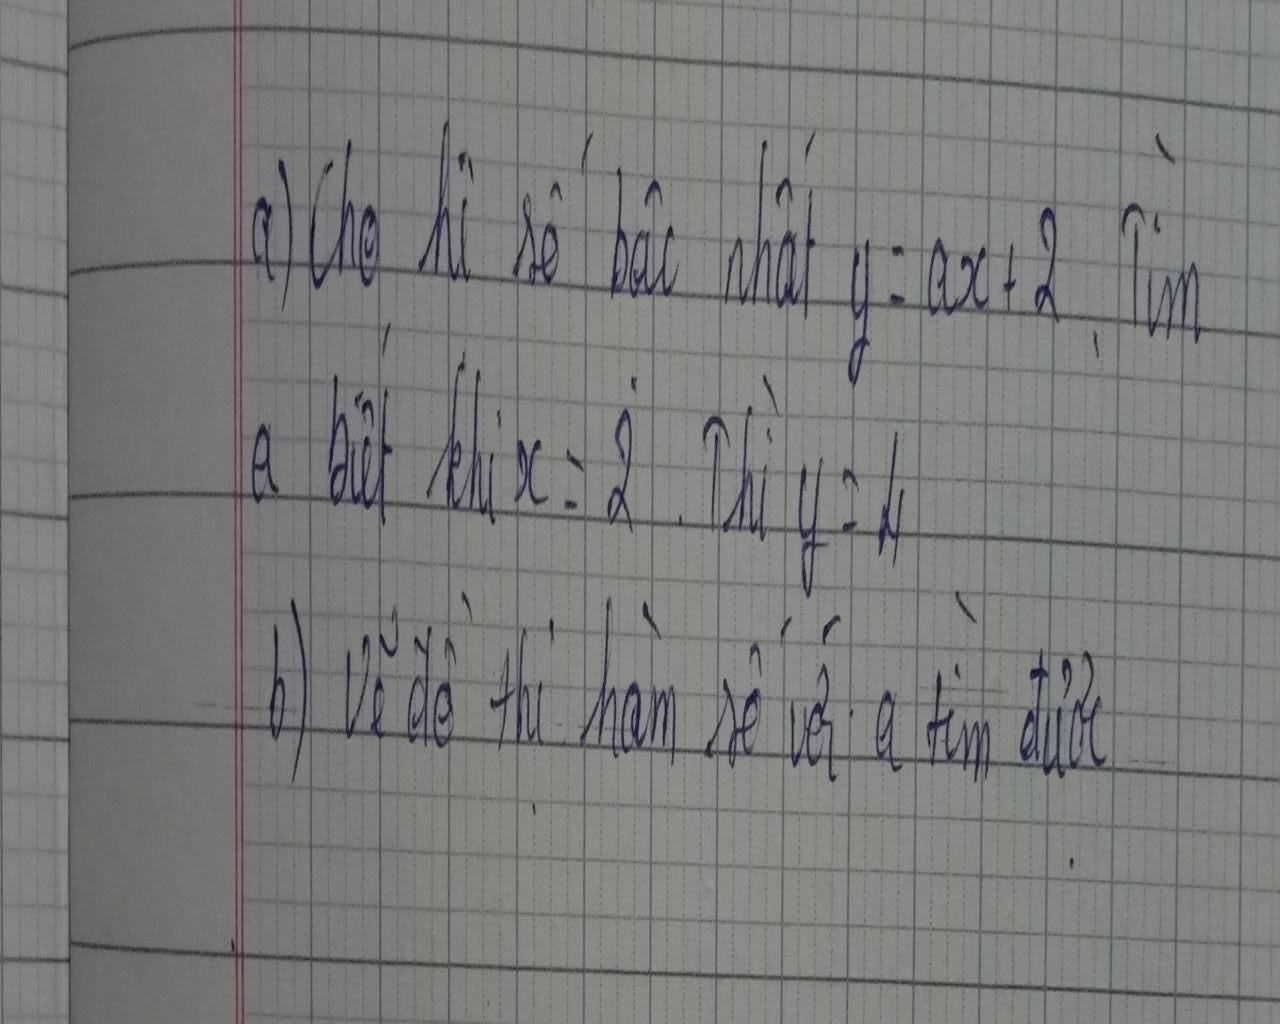 a) Cho hi số bậc nhất y = ax + 2. Tìm
a biết khi x = 2. Thì y = 4
b) Vẽ đồ thị hàm số với a tìm được